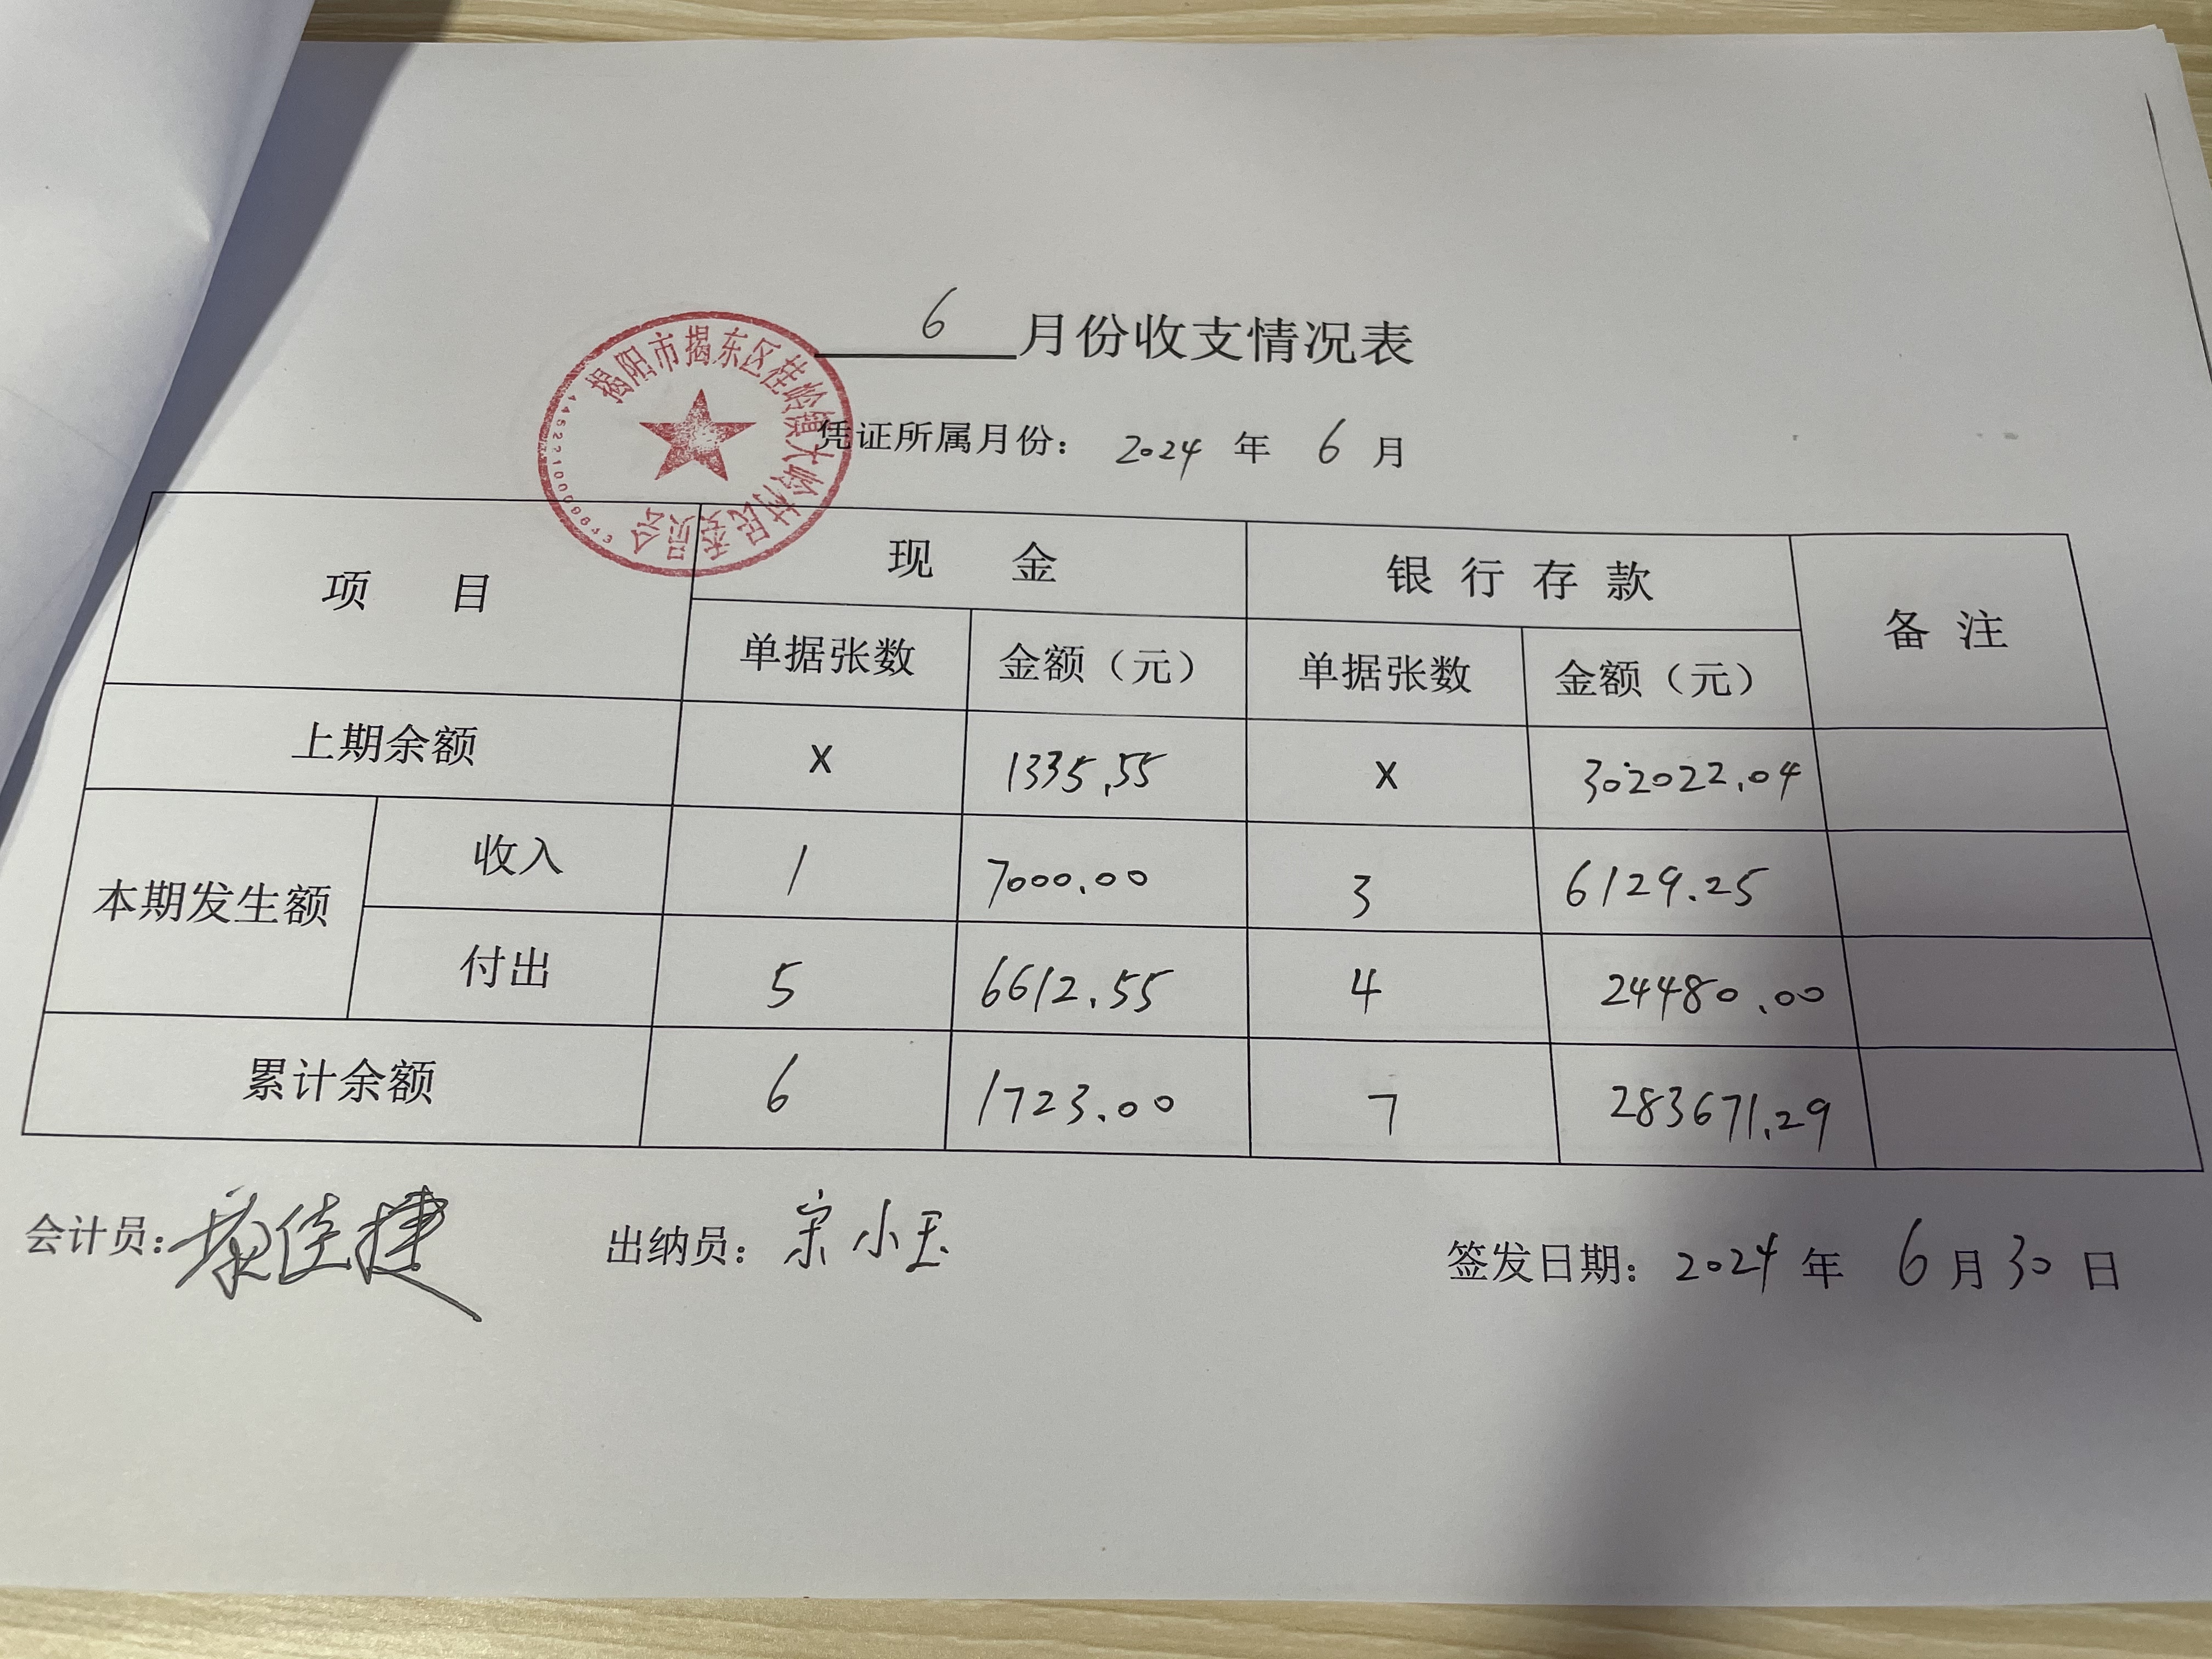 6 月份收支情况表
揭阳市揭东区桂岭镇大岭村民委员会
凭证所属月份： 2024 年 6 月
项 目 现 金 银 行 存 款 备 注
单据张数 金额（元） 单据张数 金额（元）
上期余额 X 1335.55 X 302022.04
本期发生额 收入 1 7000.00 3 6129.25
付出 5 6612.55 4 24480.00
累计余额 6 1723.00 7 283671.29
会计员： 佳捷 出纳员： 宋小玉 签发日期： 2024 年 6 月 30 日